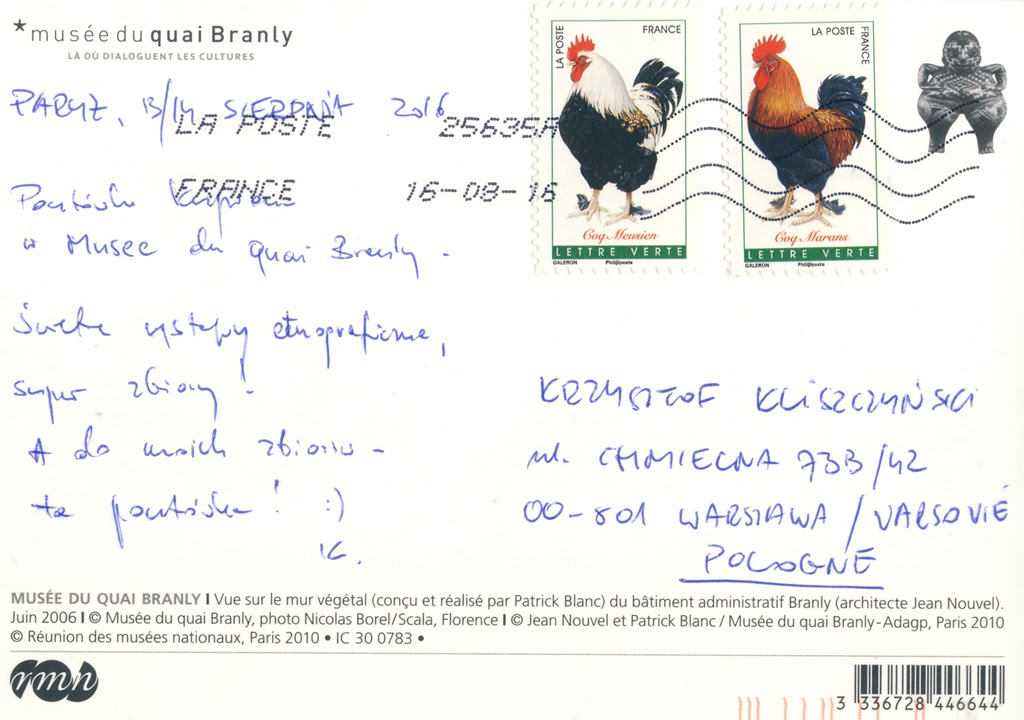 *musée du quai Branly
LÀ OÙ DIALOGUENT LES CULTURES
PARYŻ, 13/14 SIERPNIA 2016
LA POSTE 25635A
FRANCE 16-08-16
Pocztówka kupiona
w Musee du quai Branly.
Świetne wystawy etnograficzne,
super zbiory!
A do moich zbiorów –
ta pocztówka! :)
K.
LA POSTE
FRANCE
Coq Meusien
LETTRE VERTE
GALERON Phil@poste
LA POSTE
FRANCE
Coq Marans
LETTRE VERTE
GALERON Phil@poste
KRZYSZTOF KLISZCZYŃSKI
ul. CHMIELNA 73B/42
00-801 WARSZAWA / VARSOVIE
POLOGNE
MUSÉE DU QUAI BRANLY I Vue sur le mur végétal (conçu et réalisé par Patrick Blanc) du bâtiment administratif Branly (architecte Jean Nouvel).
Juin 2006 I © Musée du quai Branly, photo Nicolas Borel/Scala, Florence I © Jean Nouvel et Patrick Blanc / Musée du quai Branly-Adagp, Paris 2010
© Réunion des musées nationaux, Paris 2010 • IC 30 0783 •
rmn
3 336728 446644